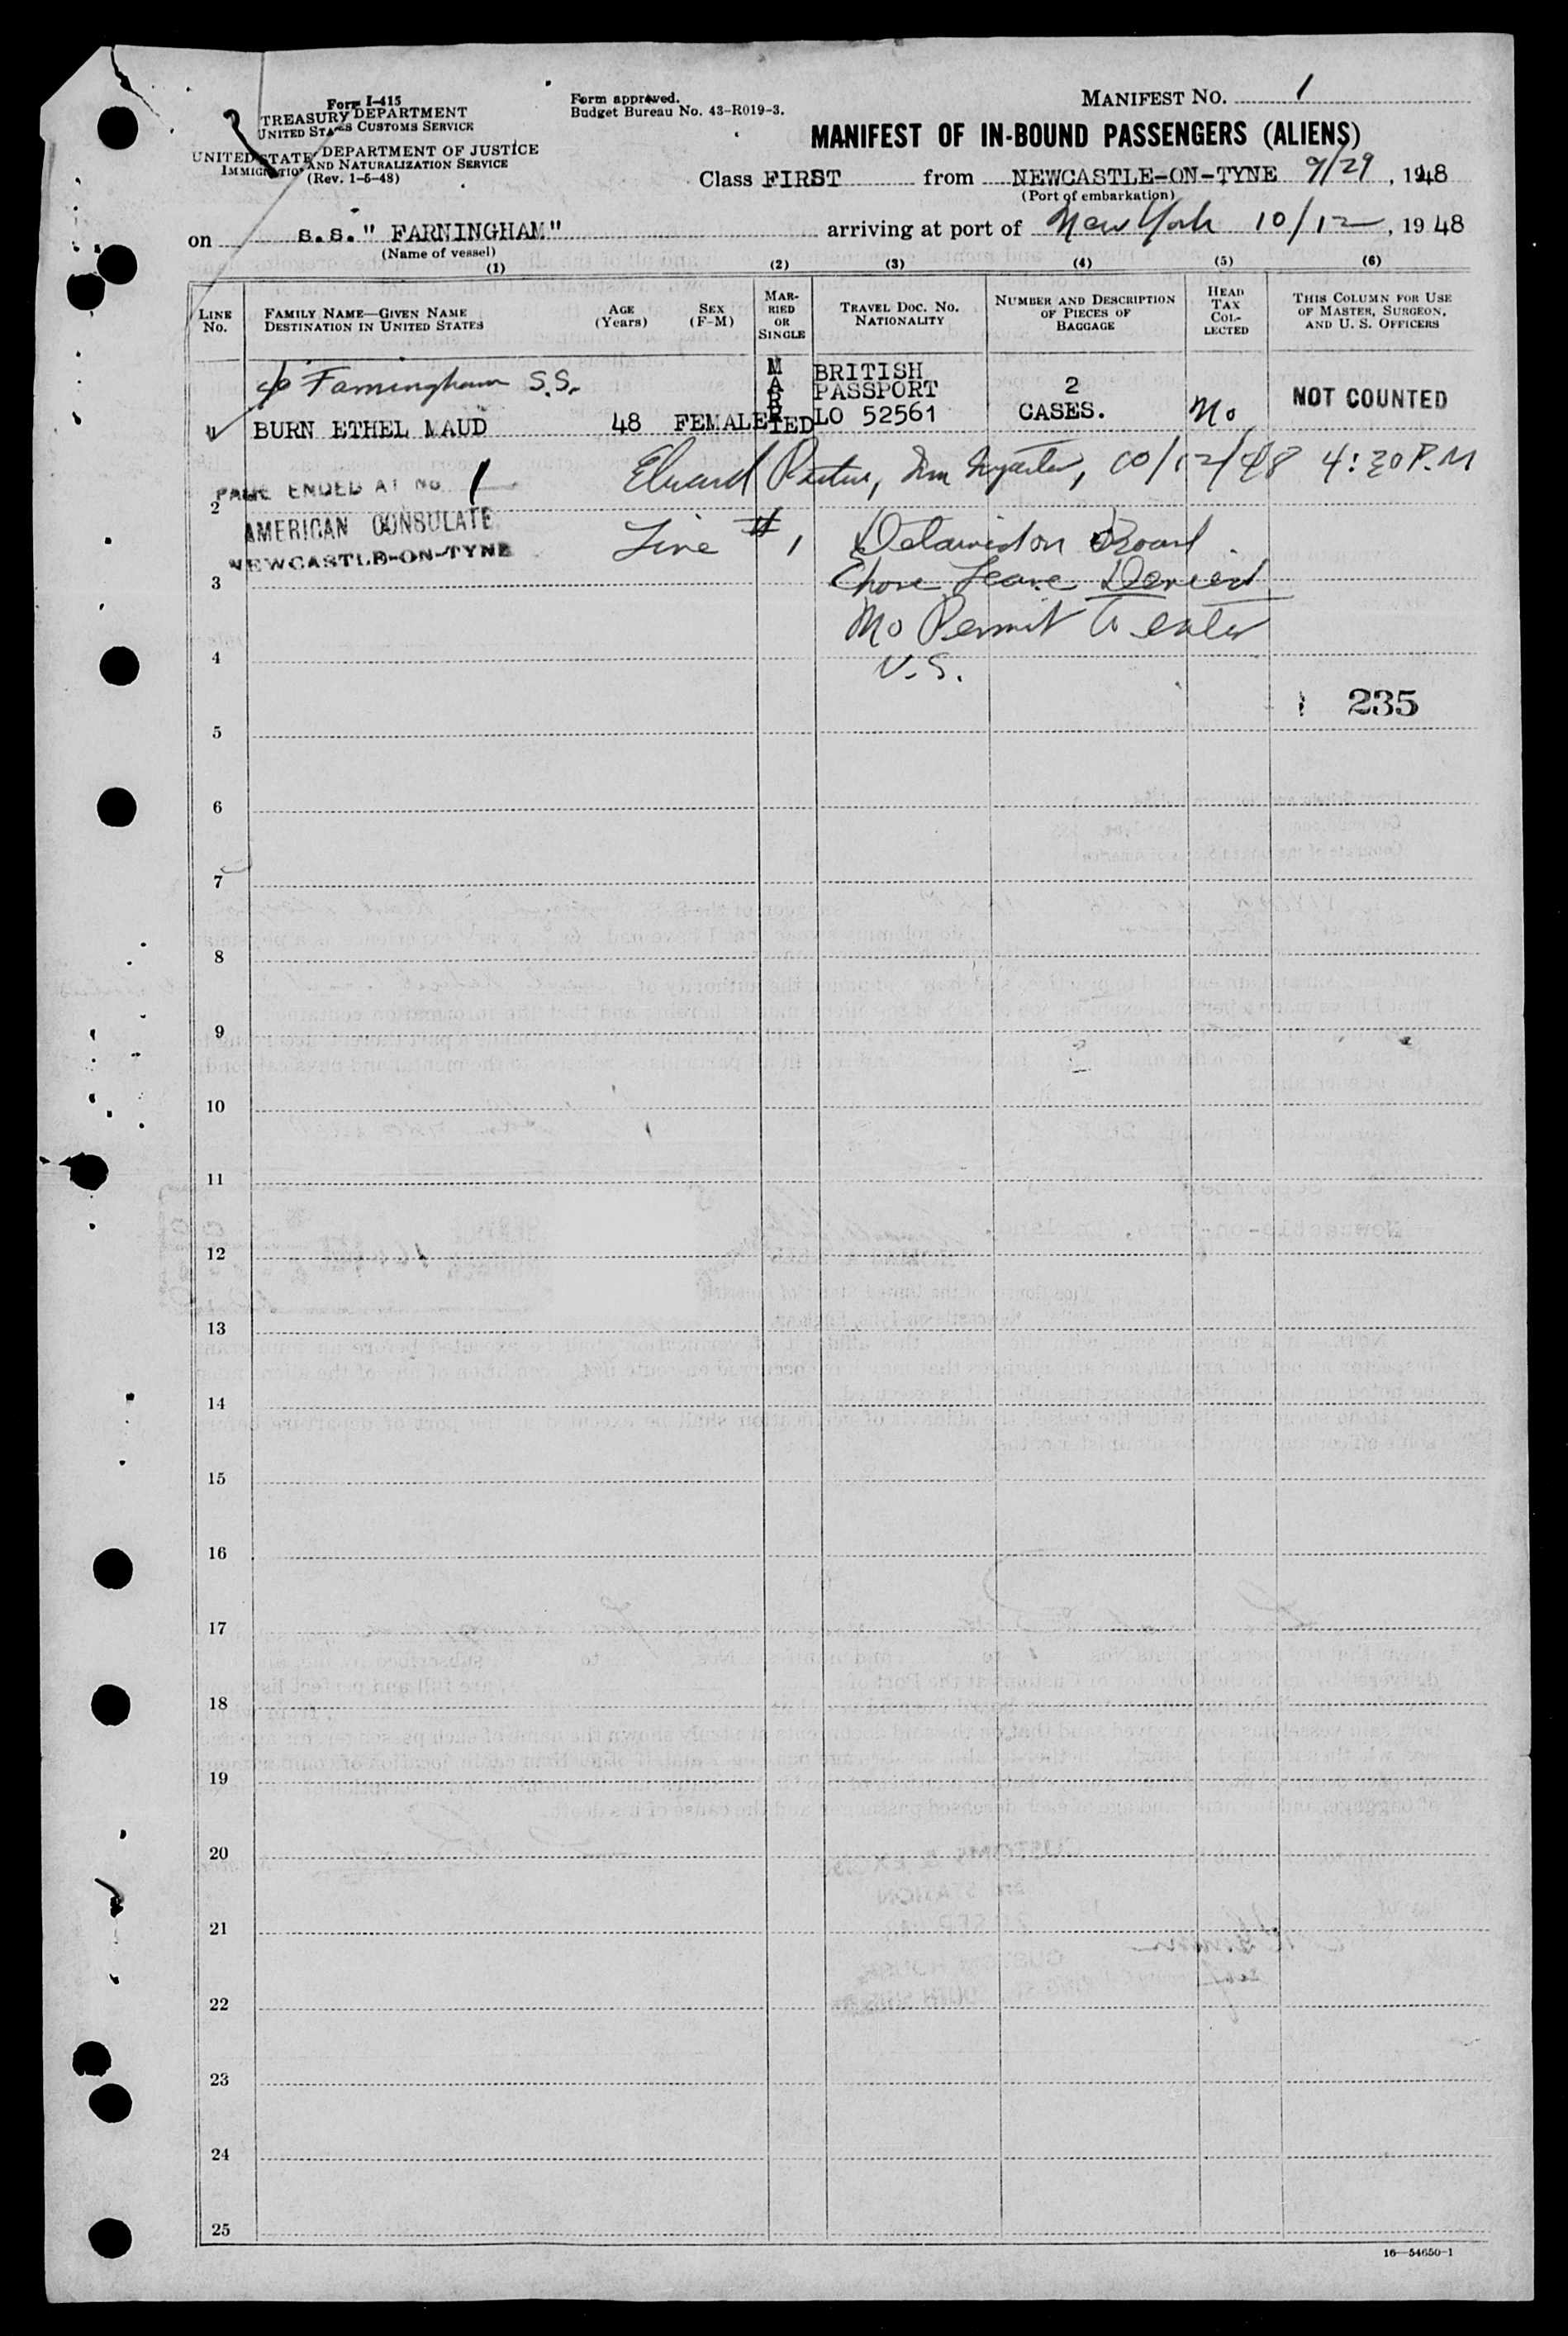 Form I-415
TREASURY DEPARTMENT
UNITED STATES CUSTOMS SERVICE
UNITED STATES DEPARTMENT OF JUSTICE
IMMIGRATION AND NATURALIZATION SERVICE
(Rev. 1-5-48)
Form approved.
Budget Bureau No. 43-R019-3.
MANIFEST NO. 1
MANIFEST OF IN-BOUND PASSENGERS (ALIENS)
Class FIRST from NEWCASTLE-ON-TYNE 9/29, 1948
(Port of embarkation)
on s.s." FARNINGHAM" arriving at port of New York 10/12, 1948
(Name of vessel)
(1) (2) (3) (4) (5) (6)
LINE No.
FAMILY NAME—GIVEN NAME
DESTINATION IN UNITED STATES
AGE (Years)
SEX (F-M)
MARRIED OR SINGLE
TRAVEL DOC. NO.
NATIONALITY
NUMBER AND DESCRIPTION OF PIECES OF BAGGAGE
HEAD TAX COLLECTED
THIS COLUMN FOR USE OF MASTER, SURGEON, AND U. S. OFFICERS
c/o Farningham S.S.
1 BURN ETHEL MAUD 48 FEMALE MARRIED BRITISH PASSPORT LO 52561 2 CASES. No NOT COUNTED
10/12/48 4:30 P.M
PAGE ENDED AT No. 1
2
AMERICAN CONSULATE
NEWCASTLE-ON-TYNE
Line # 1 Board
3
Shore Leave Denied
No Permit to enter
4
U.S.
235
5
6
7
8
9
10
11
12
13
14
15
16
17
18
19
20
21
22
23
24
25
16—54650-1